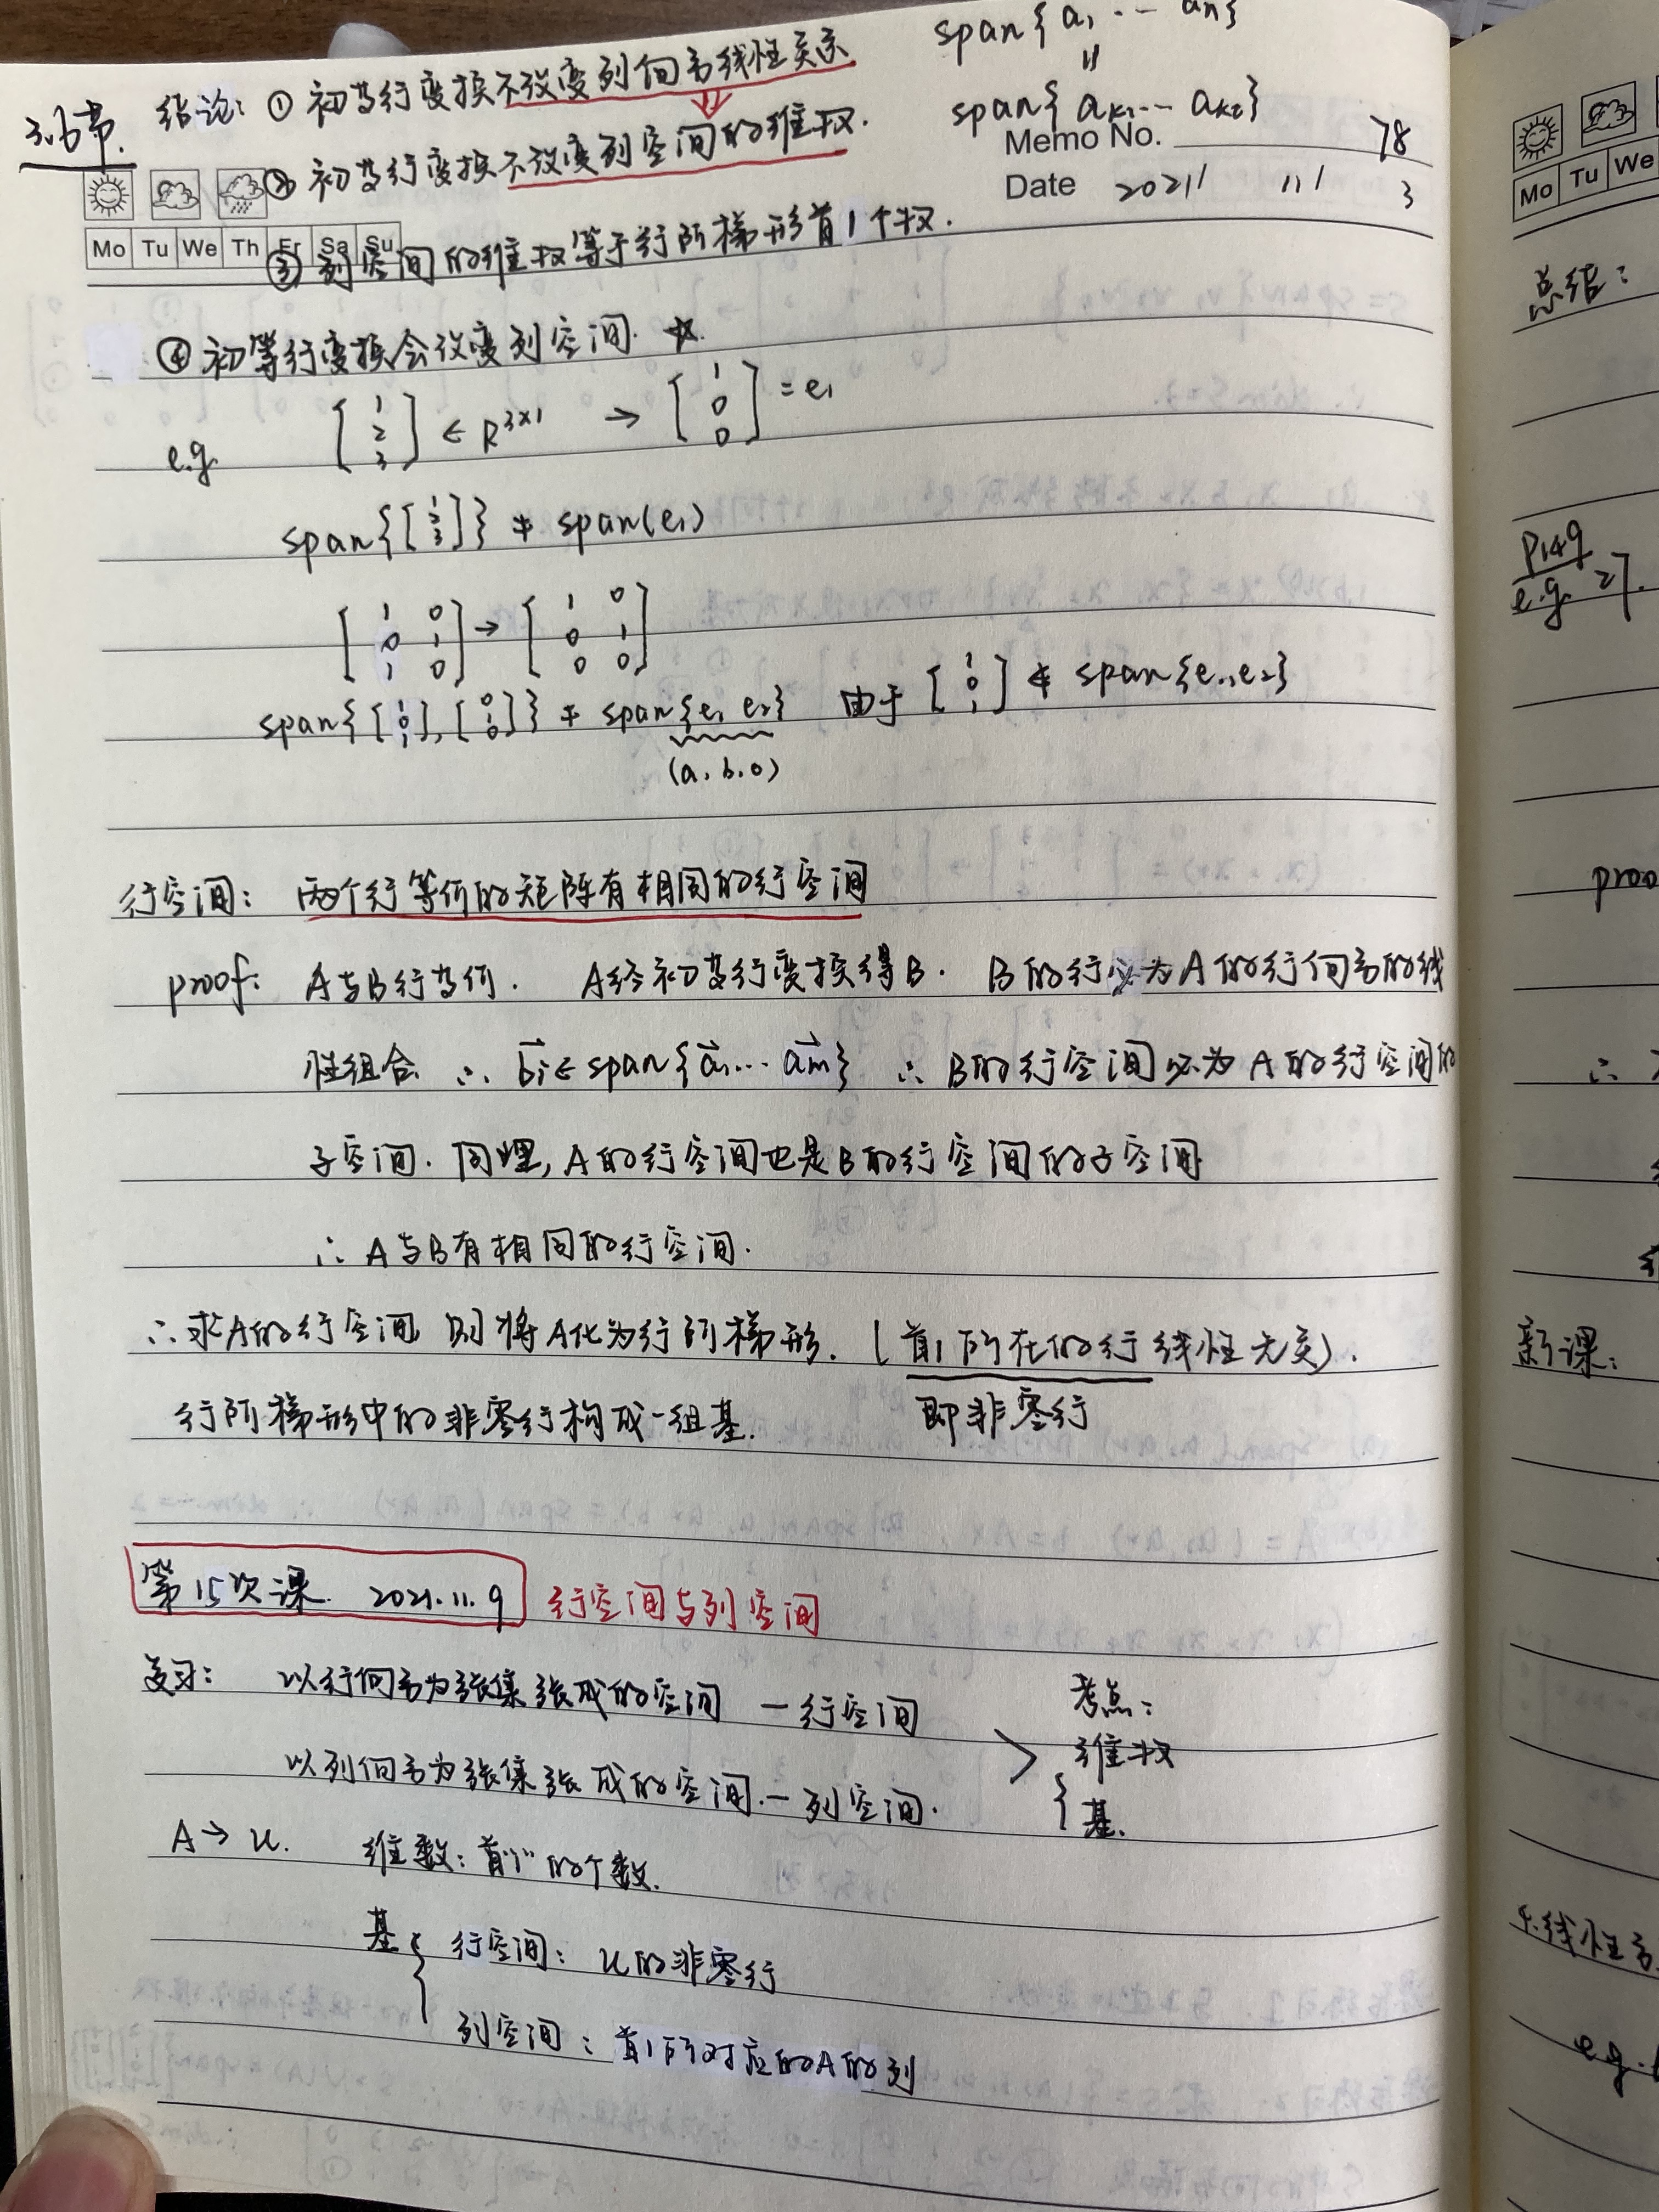 span{a₁ ⋯ aₙ}
||
span{aₖ₁ ⋯ aₖᵣ}
3.6节. 结论: ① 初等行变换不改变列向量线性关系.
② 初等行变换不改变列空间的维数.
Memo No. 78
Date 2021 / 11 / 3
Mo Tu We Th Fr Sa Su
③ 列空间的维数等于行阶梯形首1个数.
④ 初等行变换会改变列空间. ☆
e.g. [1 2 3] ∈ R³ˣ¹ → [1 0 0] = e₁
span{[1 2 3]} ≠ span(e₁)
[1 0; 0 1; 1 0] → [1 0; 0 1; 0 0]
span{[1 0 1], [0 1 0]} ≠ span{e₁ e₂} 由于 [1 0 1] ∉ span{e₁, e₂}
(a, b, 0)
行空间: 两个行等价的矩阵有相同的行空间
proof: A与B行等价. A经初等行变换得B. B的行必为A的行向量的线
性组合 ∴ b⃗ᵢ ∈ span{a⃗₁ ⋯ a⃗ₘ} ∴ B的行空间必为A的行空间的
子空间. 同理, A的行空间也是B的行空间的子空间
∴ A与B有相同的行空间.
∴ 求A的行空间, 则将A化为行阶梯形. (首1所在的行线性无关).
行阶梯形中的非零行构成一组基. 即非零行
第15次课. 2021.11.9 行空间与列空间
复习: 以行向量为张集张成的空间 — 行空间
考点:
维数
以列向量为张集张成的空间. — 列空间.
基.
A → U. 维数: 首"1"的个数.
基 { 行空间: U的非零行
列空间: 首1所对应的A的列
Mo Tu We
总结:
P149
e.g. 27.
∴
新课:
4.线性
e.g.